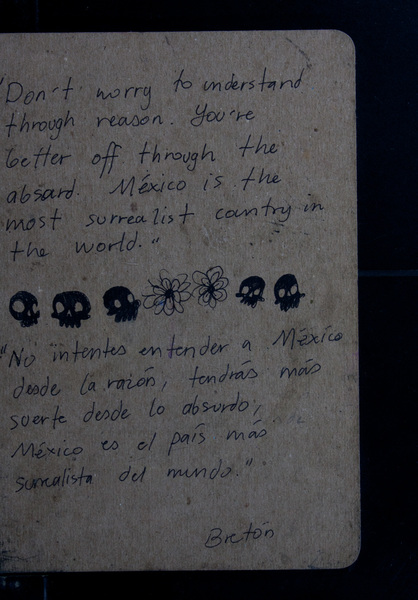 "Don't worry to understand
through reason. You're
better off through the
absurd. México is the
most surrealist country in
the world."
"No intentes entender a México
desde la razón, tendrás más
suerte desde lo absurdo,
México es el país más
surrealista del mundo."
Bretón